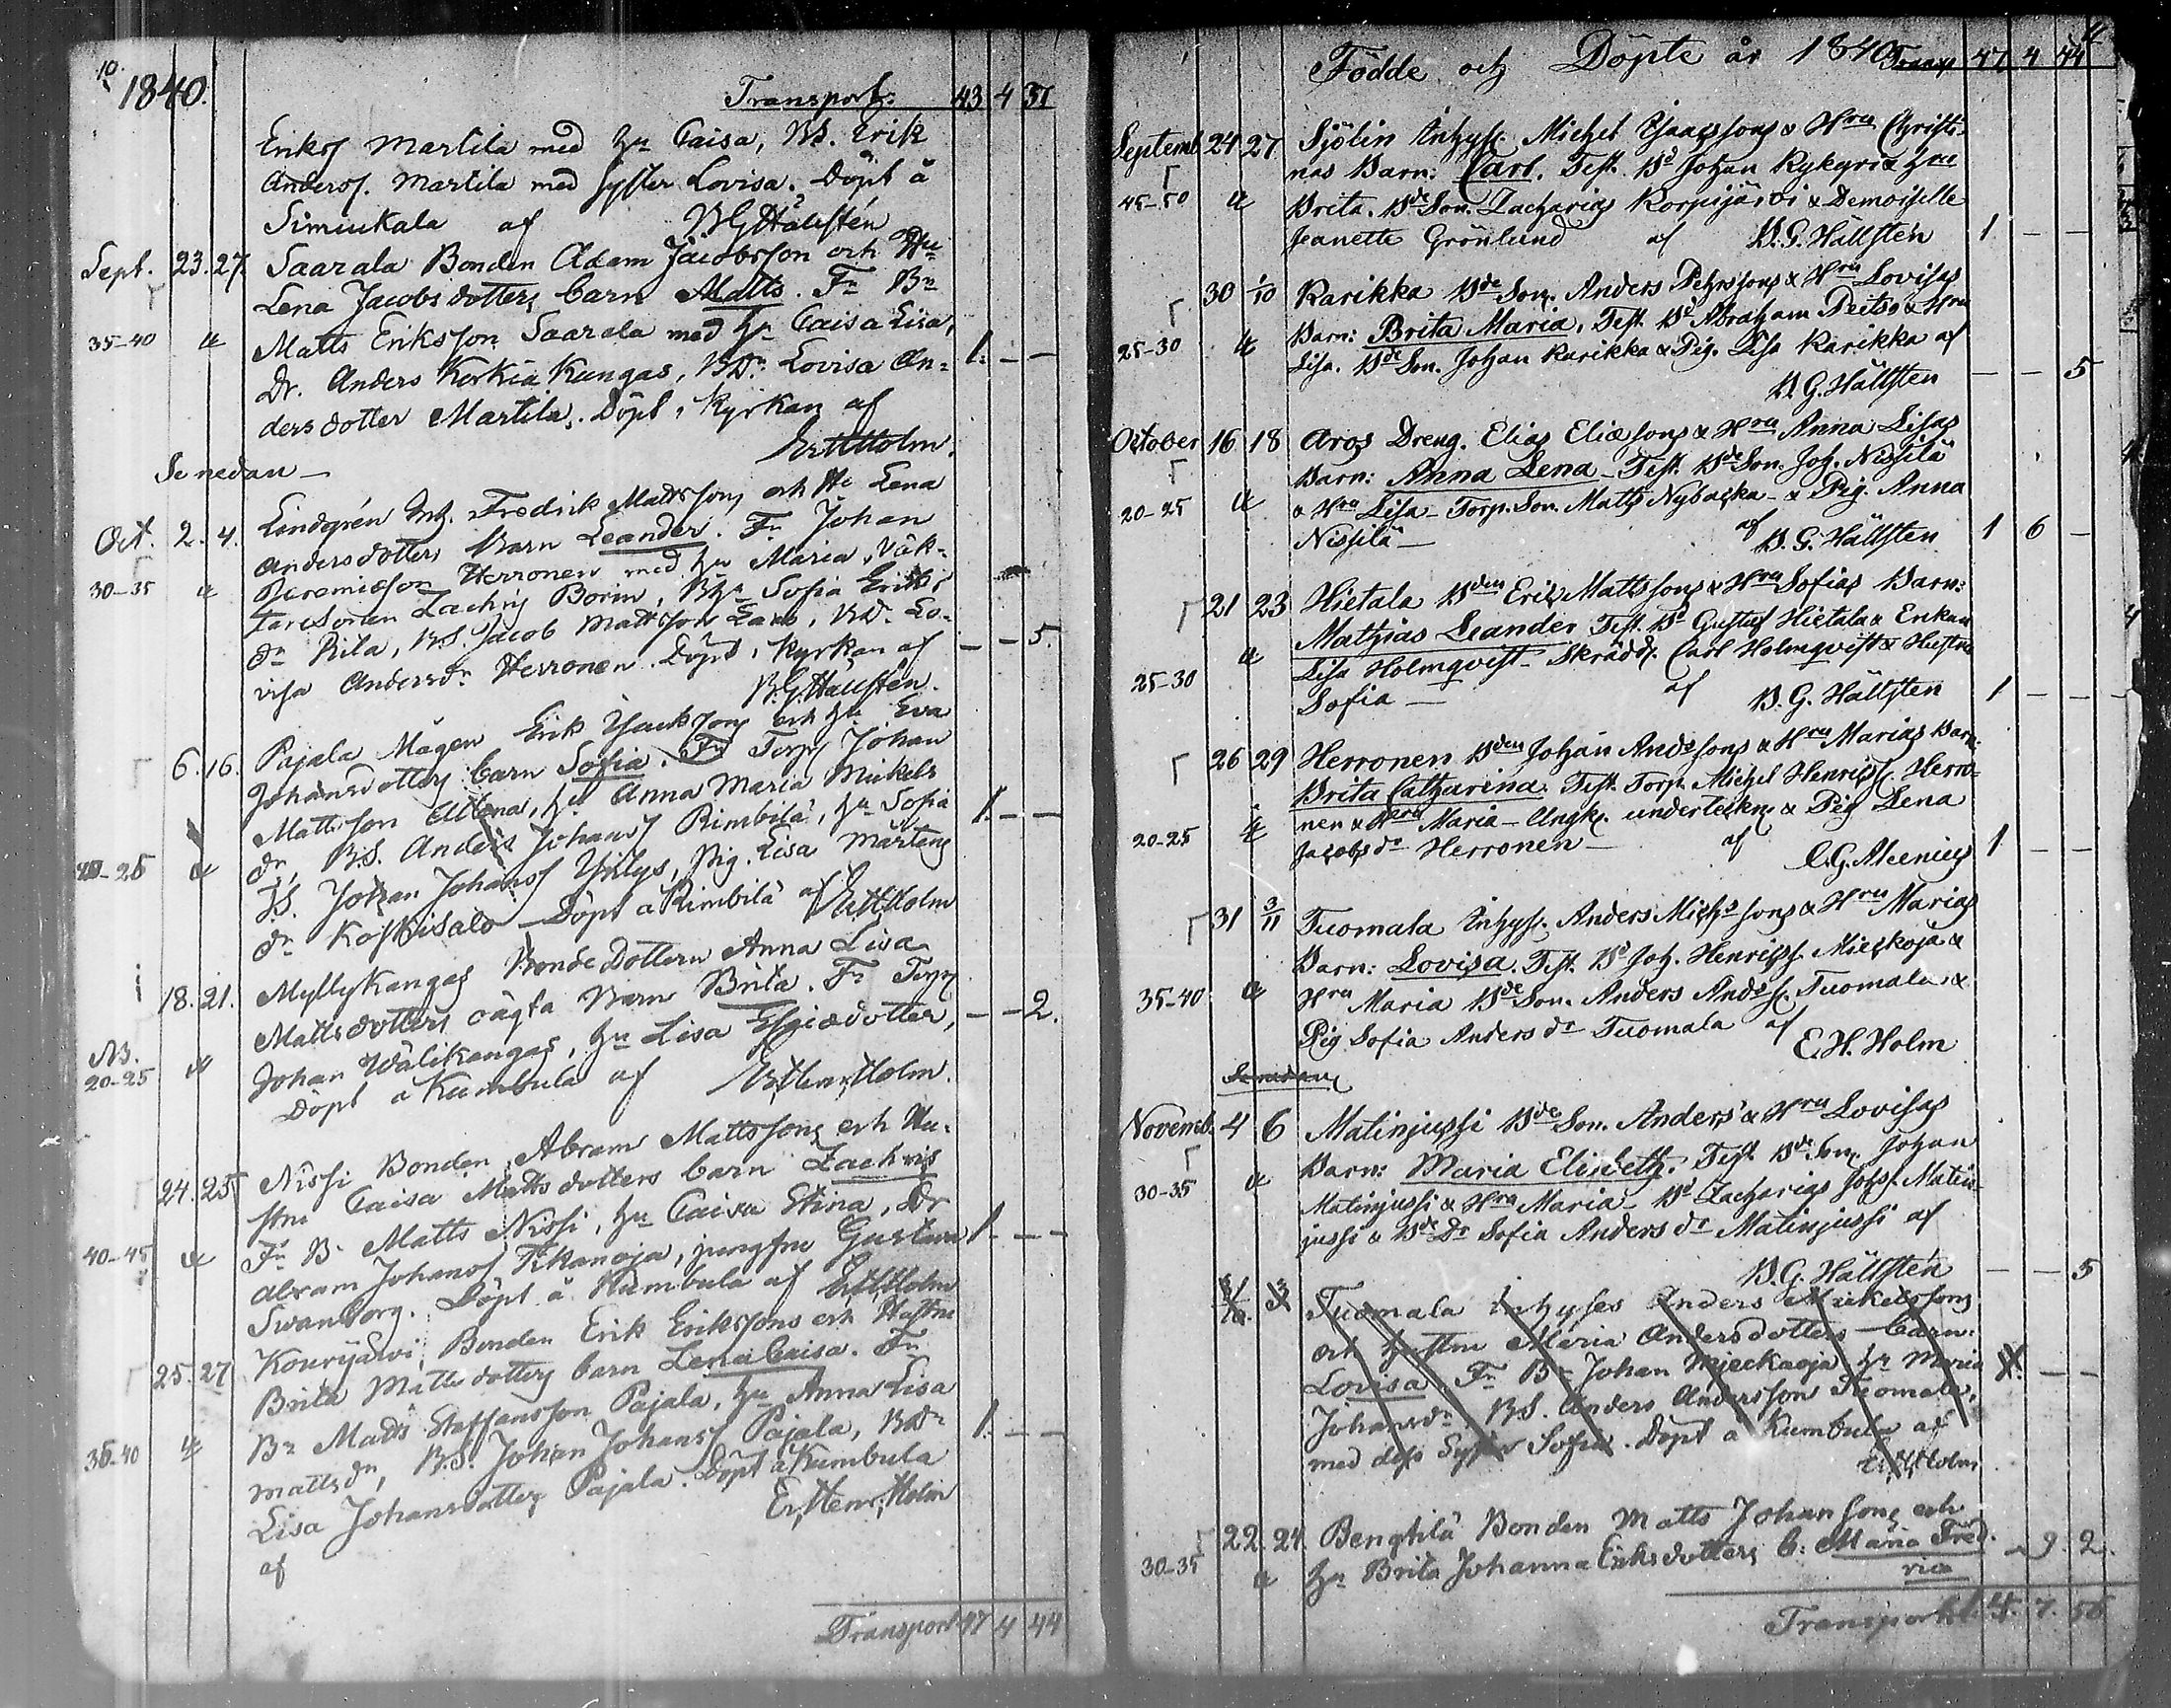 10.
1840. Transport. 43 4 37
Erikss Martila med hu Caisa, BS. Erik
Anderss. Martila med syster Lovisa. Döpt å
Simiukala af B G Hällstén
Sept. 23. 27. Saarala Bonden Adam Jacobsson och Hu
Lena Jacobsdotters barn Matts. Fr Bn
35-40 Matts Eriksson Saarala med hu Caisa Lisa,
Dr. Anders Korkia Kangas, BDr. Lovisa An- 1. — —
dersdotter Martila. Döpt i kyrkan af
Er H Holm.
Se nedan —
Oct. 2. 4. Lindgrén Inh. Fredrick Mattssons och Hu Lena
Andersdotters Barn Leander. Fr Johan
30-35 Jeremiæson Herronen med hu Maria, Väk-
taresonen Zachris Borin, Sofia Eriks
dr Rita, BS. Jacob Mattsson, BD. Lo-
visa Andersdr Herronen. Döpt i kyrkan af — — 5.
B.G. Hällstén.
6. 16. Pajala Mågen Erik Isacksons och hu Eva
Johansdotters barn Sofia. Fr Torp Johan
Mattsson, hu Anna Maria Mickels
20-25 dr, BS. Anders Johanss Rimbilä, hu Sofia 1. — —
Johan Johanss, Pig. Lisa Mårtens
dr Koskisalo Döpt å Rimbilä af Er H Holm
18. 21. Myllykangas BondeDottern Anna Lisa
Mattsdotters oägta Barn Brita. Fr Torp
NB.
20-25 Johan Wälikangas, hu Lisa Esaiædotter, — — 2.
Döpt å Kumbula af Er Hen. Holm.
24. 25 Nissi Bonden Abram Mattssons och Hu-
stru Caisa Mattsdotters barn Zachris
40-45 Fr B. Matts Nissi, hu Caisa Stina, Dr 1. — —
Abram Johanss, jungfru Gustava
Swanborg. Döpt å Kumbula af Er H Holm
25. 27 Kourijärvi Bonden Erik Erikssons och Hustru
Brita Mattsdotters barn Lena Caisa. Fr
35-40 Br Matts Staffansson Pajala, hu Anna Lisa
Mattsdr, BS. Johan Johanss Pajala, BDr 1. — —
Lisa Johansdotter Pajala. Döpt å Kumbula
af Er, Henr, Holm
Transport 47 4 44
11
Födde och Döpte år 1840 Transp 47 4 44
Septemb. 24 27 Sjölin Inhyss. Michel Isaacssons & Hru Christi-
nas Barn: Carl. Test. Bd Johan Rykyri & Hru
45-50 Brita. Bde Son. Zacharias Korpijärvi & Demoiselle
Jeanette Grönlund af B. G. Hällstén 1 — —
30 1/10 Karikka Bde Son. Anders Pehrssons & Hru Lovisas
Barn: Brita Maria, Test. Bd Abraham Peitso & Hru
25-30 Lisa. Bde Son. Johan Karikka & Pig. Lisa Karikka af
B. G. Hällsten — — 5
October 16 18 Aros Dreng. Elias Eliæsons & Hru Anna Lisas
Barn: Anna Lena — Test. Bde Son. Joh. Nissilä
20-25 & Hru Lisa — Torp. Son. Matts Nybacka — & Pig. Anna
Nissilä — af B. G. Hällsten 1 6 —
21 23 Hietala Bden Eric Mattssons & Hru Sofias Barn:
Mathias Leander Test. Bd Gustaf Hietala & Enkan
25-30 Lisa Holmqvist — Skrädd. Carl Holmqvist & Hustru
Sofia — af B. G. Hällsten 1 — —
26 29 Herronen Bden Johan Andssons & Hru Marias Barn:
Brita Catharina. Test. Torp. Michel Henricss. Herro-
20-25 nen & Hru Maria — Ungk. underteckn. & Pig Lena
Jacobsdr Herronen — af C. G. Alcenius 1 — —
31 3/11 Tuomala Inhyss. Anders Michssons & Hru Marias
Barn: Lovisa. Test. Bd Joh. Henricss. Mieckoja &
35-40 Hru Maria Bde Son. Anders Andss. Tuomala &
Pig Sofia Anders dr Tuomala af
E. H. Holm
Se nedan
Novemb. 4 6 Matinjussi Bde Son. Anders & Hru Lovisas
Barn: Maria Elisbeth. Test. Bde Son. Johan
30-35 Matinjussi & Hru Maria — Bd Zacharias Johss. Matin-
jussi & Bde Dr Sofia Anders dr Matinjussi af
B. G. Hällstén — — 5
Tuomala Inhyses Anders Mickelssons
och hustru Maria Andersdotters barn:
Lovisa. Fr Br Johan Mjeckaoja hr Maria 1. — —
Johansdr. BS. Anders Andersson Tuomala,
med dess Syster Sofia. Döpt å Kumbula af
Er H Holm
22. 24. Bengtilä Bonden Matts Johanssons och
30-35 hu Brita Johanna Eriksdotters b: Maria Fred- 9. 2.
rica
Transport 7. 56